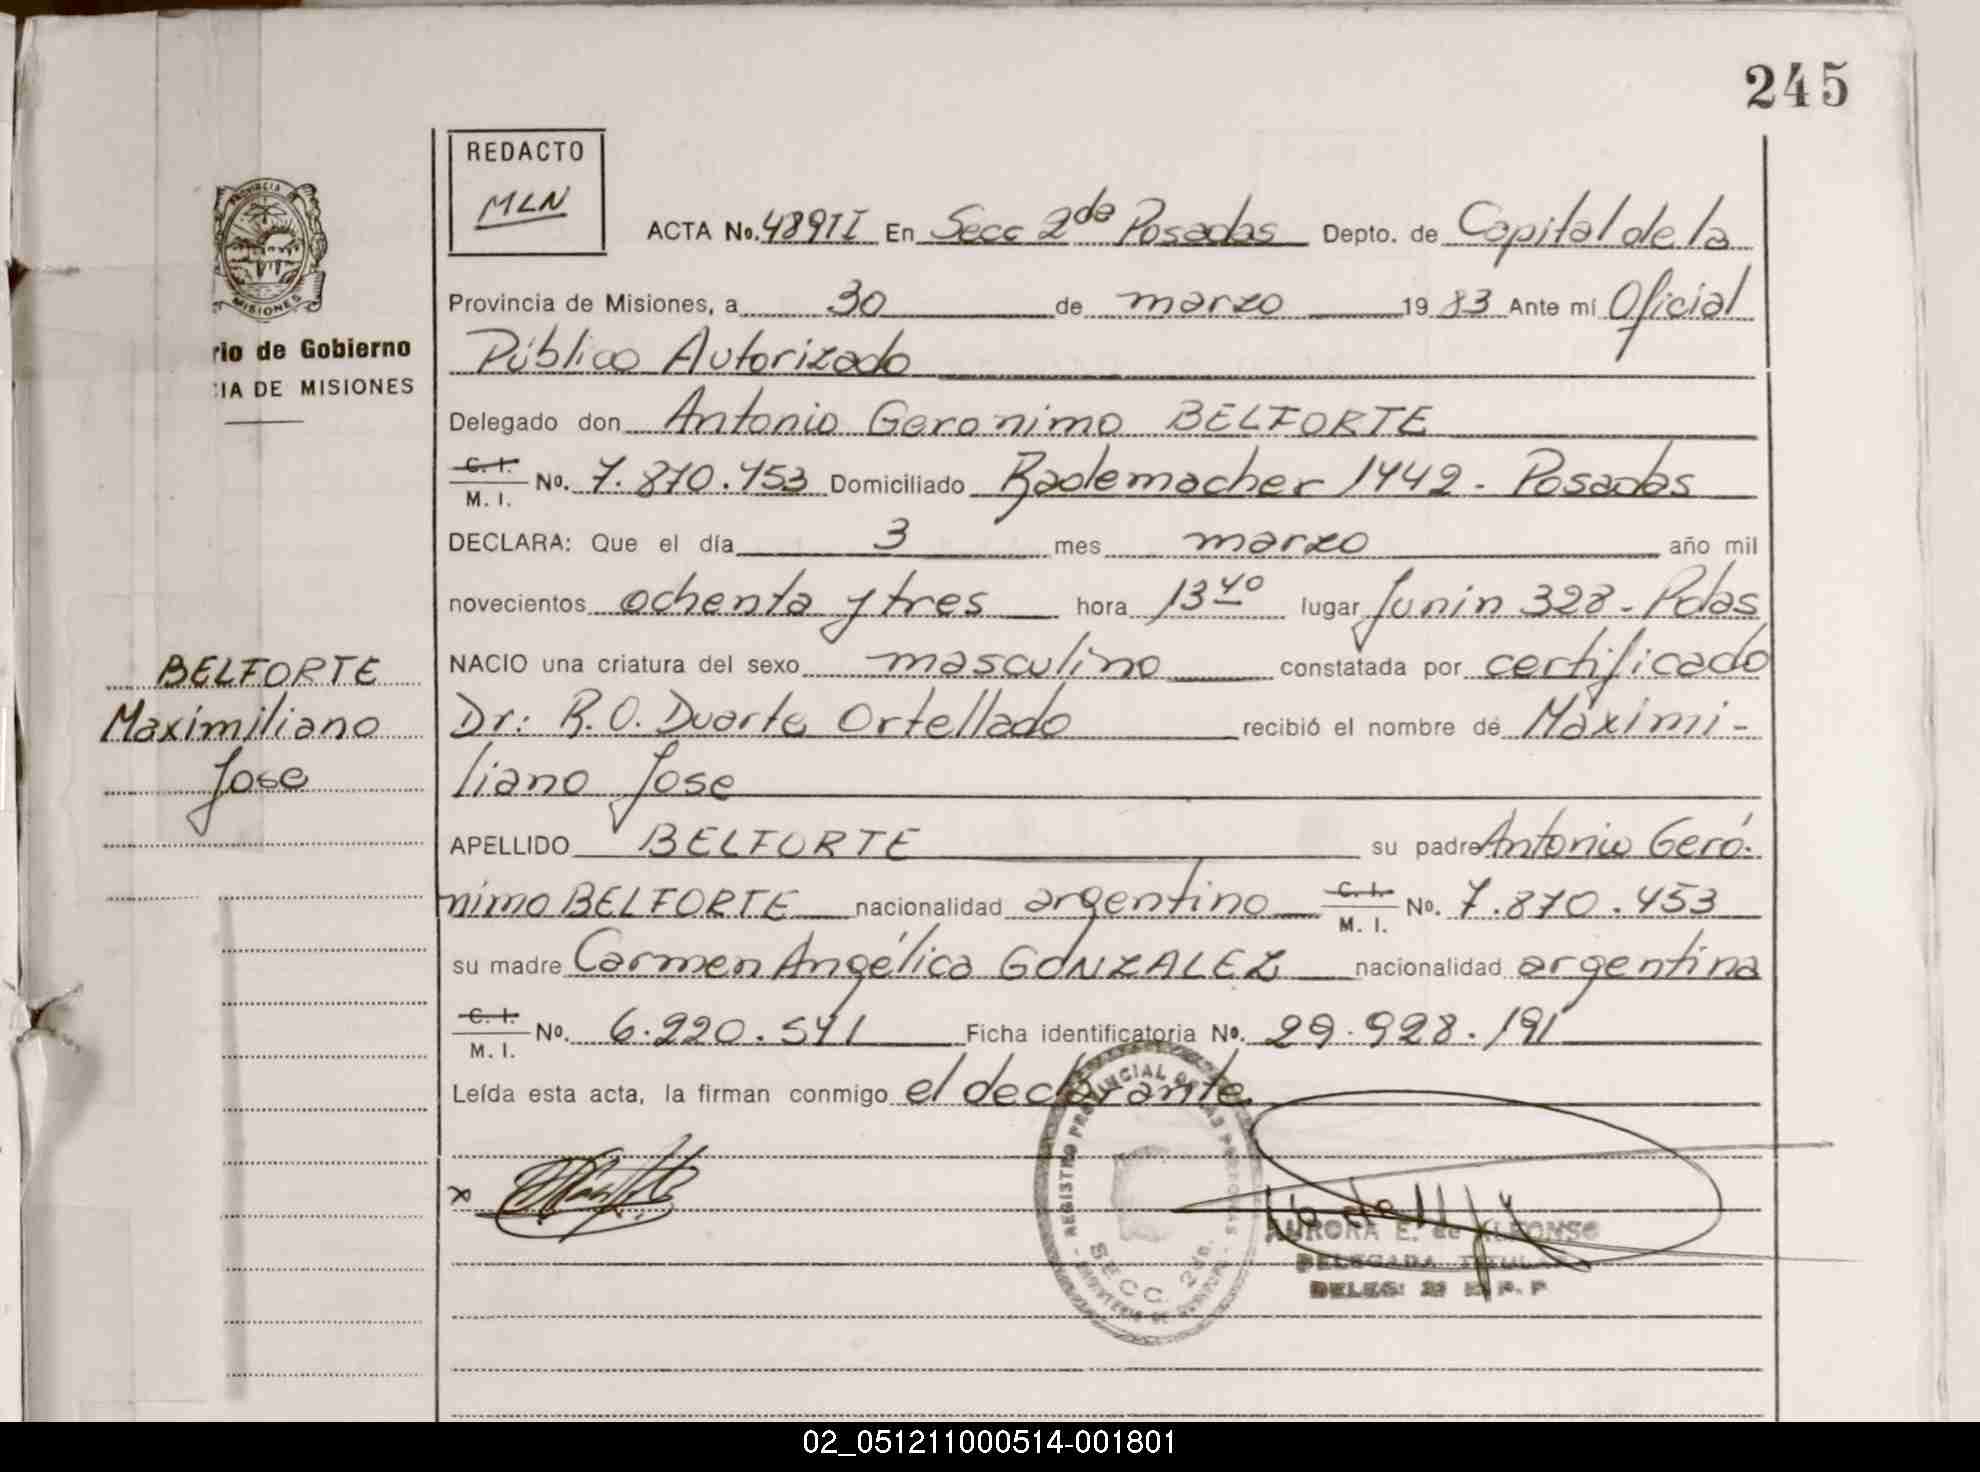 245
REDACTO
MLN
PROVINCIA DE
MISIONES
rio de Gobierno
IA DE MISIONES
ACTA No. 489II En Secc 2da Posadas Depto. de Capital de la
Provincia de Misiones, a 30 de marzo 19 83 Ante mí Oficial
Público Autorizado
Delegado don Antonio Geronimo BELFORTE
C. I. M. I. No. 7.870.453 Domiciliado Rademacher 1442 - Posadas
DECLARA: Que el día 3 mes marzo año mil
novecientos ochenta y tres hora 13 40 lugar Junin 328 - Pdas
NACIO una criatura del sexo masculino constatada por certificado
Dr: R. O. Duarte Ortellado recibió el nombre de Maximi-
liano Jose
APELLIDO BELFORTE su padre Antonio Geró-
nimo BELFORTE nacionalidad argentino C. I. M. I. No. 7.870.453
su madre Carmen Angélica GONZALEZ nacionalidad argentina
C. I. M. I. No. 6.220.541 Ficha identificatoria No. 29.928.191
Leída esta acta, la firman conmigo el declarante
BELFORTE
Maximiliano
Jose
x
REGISTRO PROVINCIAL DE LAS PERSONAS
SECC. 2da.
AURORA E. de ALFONSO
DELEGADA TITULAR
DELEG: 2ª R. P. P
02_051211000514-001801